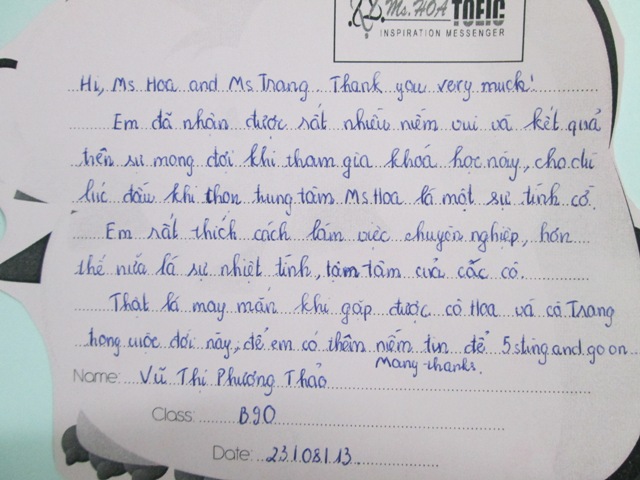 Ms. HOA TOEIC
INSPIRATION MESSENGER
Hi, Ms Hoa and Ms Trang. Thank you very much!
Em đã nhận được rất nhiều niềm vui và kết quả
trên sự mong đợi khi tham gia khoá học này, cho dù
lúc đầu khi chọn trung tâm Ms Hoa là một sự tình cờ.
Em rất thích cách làm việc chuyên nghiệp, hơn
thế nữa là sự nhiệt tình, tận tâm của các cô.
Thật là may mắn khi gặp được cô Hoa và cô Trang
trong cuộc đời này, để em có thêm niềm tin để 5 sting and go on.
Many thanks.
Name: Vũ Thị Phương Thảo
Class: B90
Date: 23/08/13